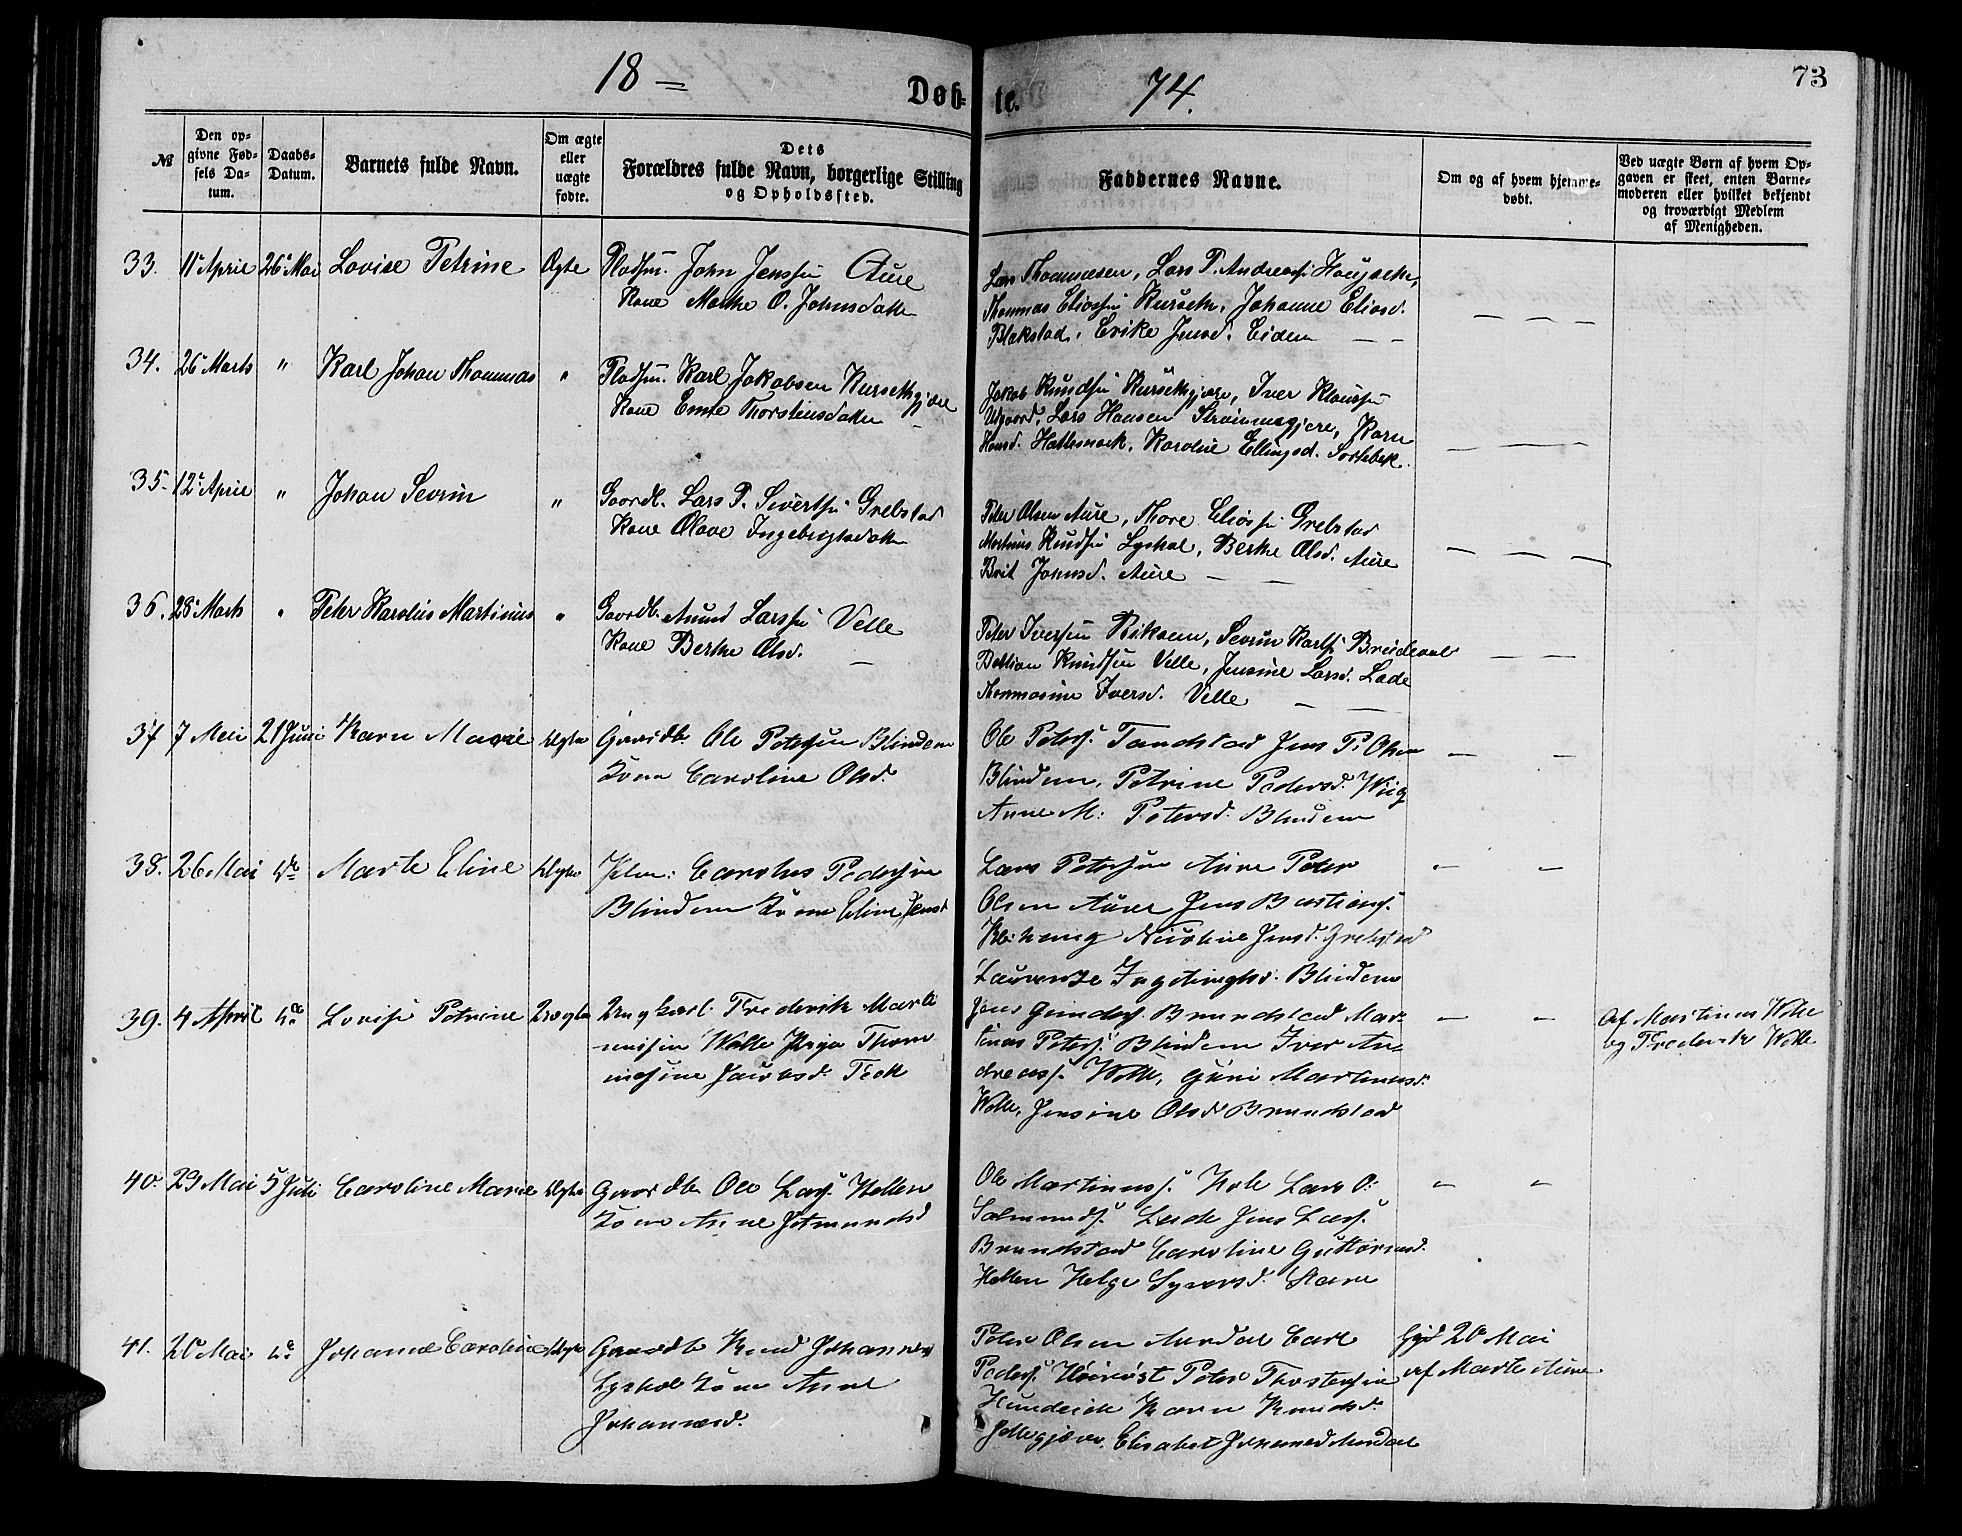 18 — Døb-
te. 74.
73
№
Den op-
givne Fød-
sels Da-
tum.
Daabs-
Datum.
Barnets fulde Navn.
Om ægte
eller
uægte
fødte.
Dets
Forældres fulde Navn, borgerlige Stilling
og Opholdssted.
Faddernes Navne.
Om og af hvem hjemme-
døbt.
Ved uægte Børn af hvem Op-
gaven er skeet, enten Barne-
moderen eller hvilket bekjendt
og troværdigt Medlem
af Menigheden.
33. 11 April 26 Mai Lovise Petrine Ægte Pladsm. John Jenssen Aure
Kone Marthe O. Johnsdatter
Lars Thommesen, Lars P. Andreass.
Thommas Eliassen Kurseth, Johanne Eliasd.
Blakstad, Erike Jensd. Eidem — —
— — —
34. 26 Marts " Karl Johan Thommas " Pladsm. Karl Jakobsen Kursethgjære
Kone Thorsteinsdatter
Jakob Knudsen Kursethgjære, Iver Klaussen
Lars Hansen Strømmegjære, Karn
Hansd. Hattesmark, Karoline Ellingsd. Sortebek.
— — —
35. 12 April " Johan Sevrin " Gaardb. Lars P. Sivertsen Grebstad
Kone Olave Ingebrigtsdatter
Peter Olsen Aure, Thore Eliassen Grebstad
Martinus Knudsen Lyshol, Berthe Olsd. Aure
Brit Johnsd. Aure — —
— — —
36. 28 Marts " Peter Karolus Martinus " Gaardb. Amund Larssen Velle
Kone Berthe Olsd. —
Peter Iversen Riksem, Sevrin Karls. Breideval
Knudsen Velle, Jensine Larsd. Lade
Thommasine Iversd. Velle — —
— —
37 7 Mai 21 Juni Karn Marie Ægte Gaardb. Ole Petersen Blindem
Kone Caroline Olsd.
Ole Peters. Tandstad Jens P. Olsen
Blindem, Petrine Pedersd. Wiig
Anne M: Petersd. Blindem
— —
38. 26 Mai do Marte Eline Ægte Carolus Pedersen
Blindem Kone Eline Jensd
Lars Petersen Aure Peter
Olsen Aure Jens Bastians.
Nicoline Jensd. Grebstad
Laurense Ingebrigtsd. Blindem
— —
39. 4 April do Lovise Petrine Uægte Ungkarl Frederik Marti
nussen Welle Pige Thom
mesine Jacobsd.
Jens Brundstad Mar
tinus Peters. Blindem Iver An=
dreass. Welle, Guri Martinusd.
Welle, Jensine Olsd Brundstad
— —
Af Martinus Welle
og Frederik Welle
40. 29 Mai 5 Juli Caroline Marie Ægte Gaardb. Ole Lars. Hellen
Kone Anne
Ole Martinuss. Hole Lars O:
Salmunds. Jens Lars.
Brundstad Caroline Guttormsd.
Hellen Helge Syversd.
" "
41. 20 Mai do Johanne Caroline Ægte Gaardb. Knud Johannes
Lyshol Kone Anne
Johannesd.
Peter Olsen Aurdal Carl
Peders. Peter Thostensen
Hundeide Karn Knudsd.
Elisabet Aurdal
Hjd 20 Mai
af Marte Aure